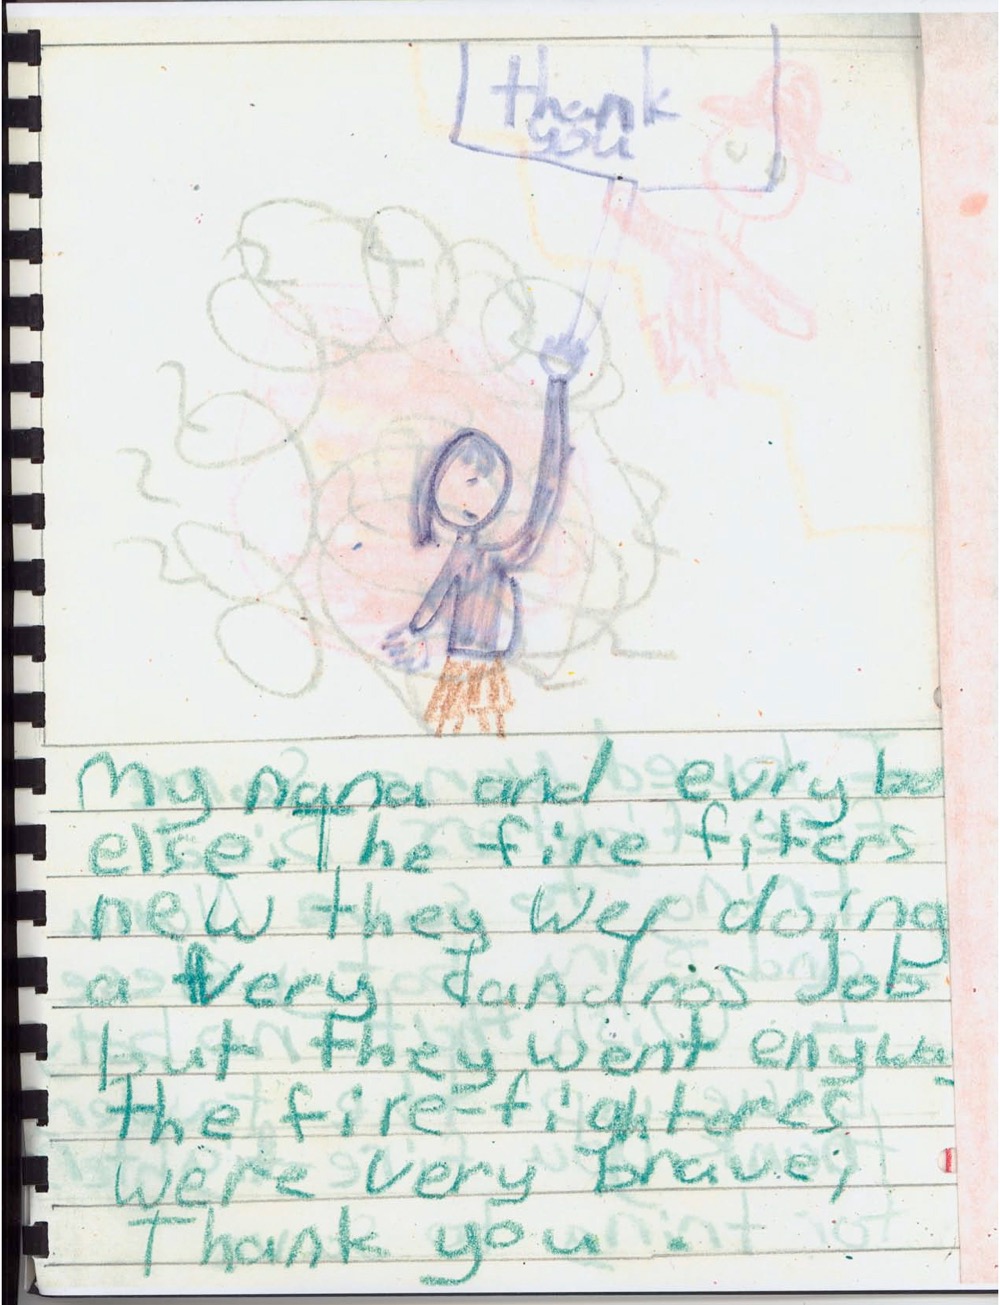 thank
you
My nana and evry bo
else. The fire fiters
new they wer doing
a very dandros Job
but they went enyway
The fire-fightores
were very brave;
Thank you.